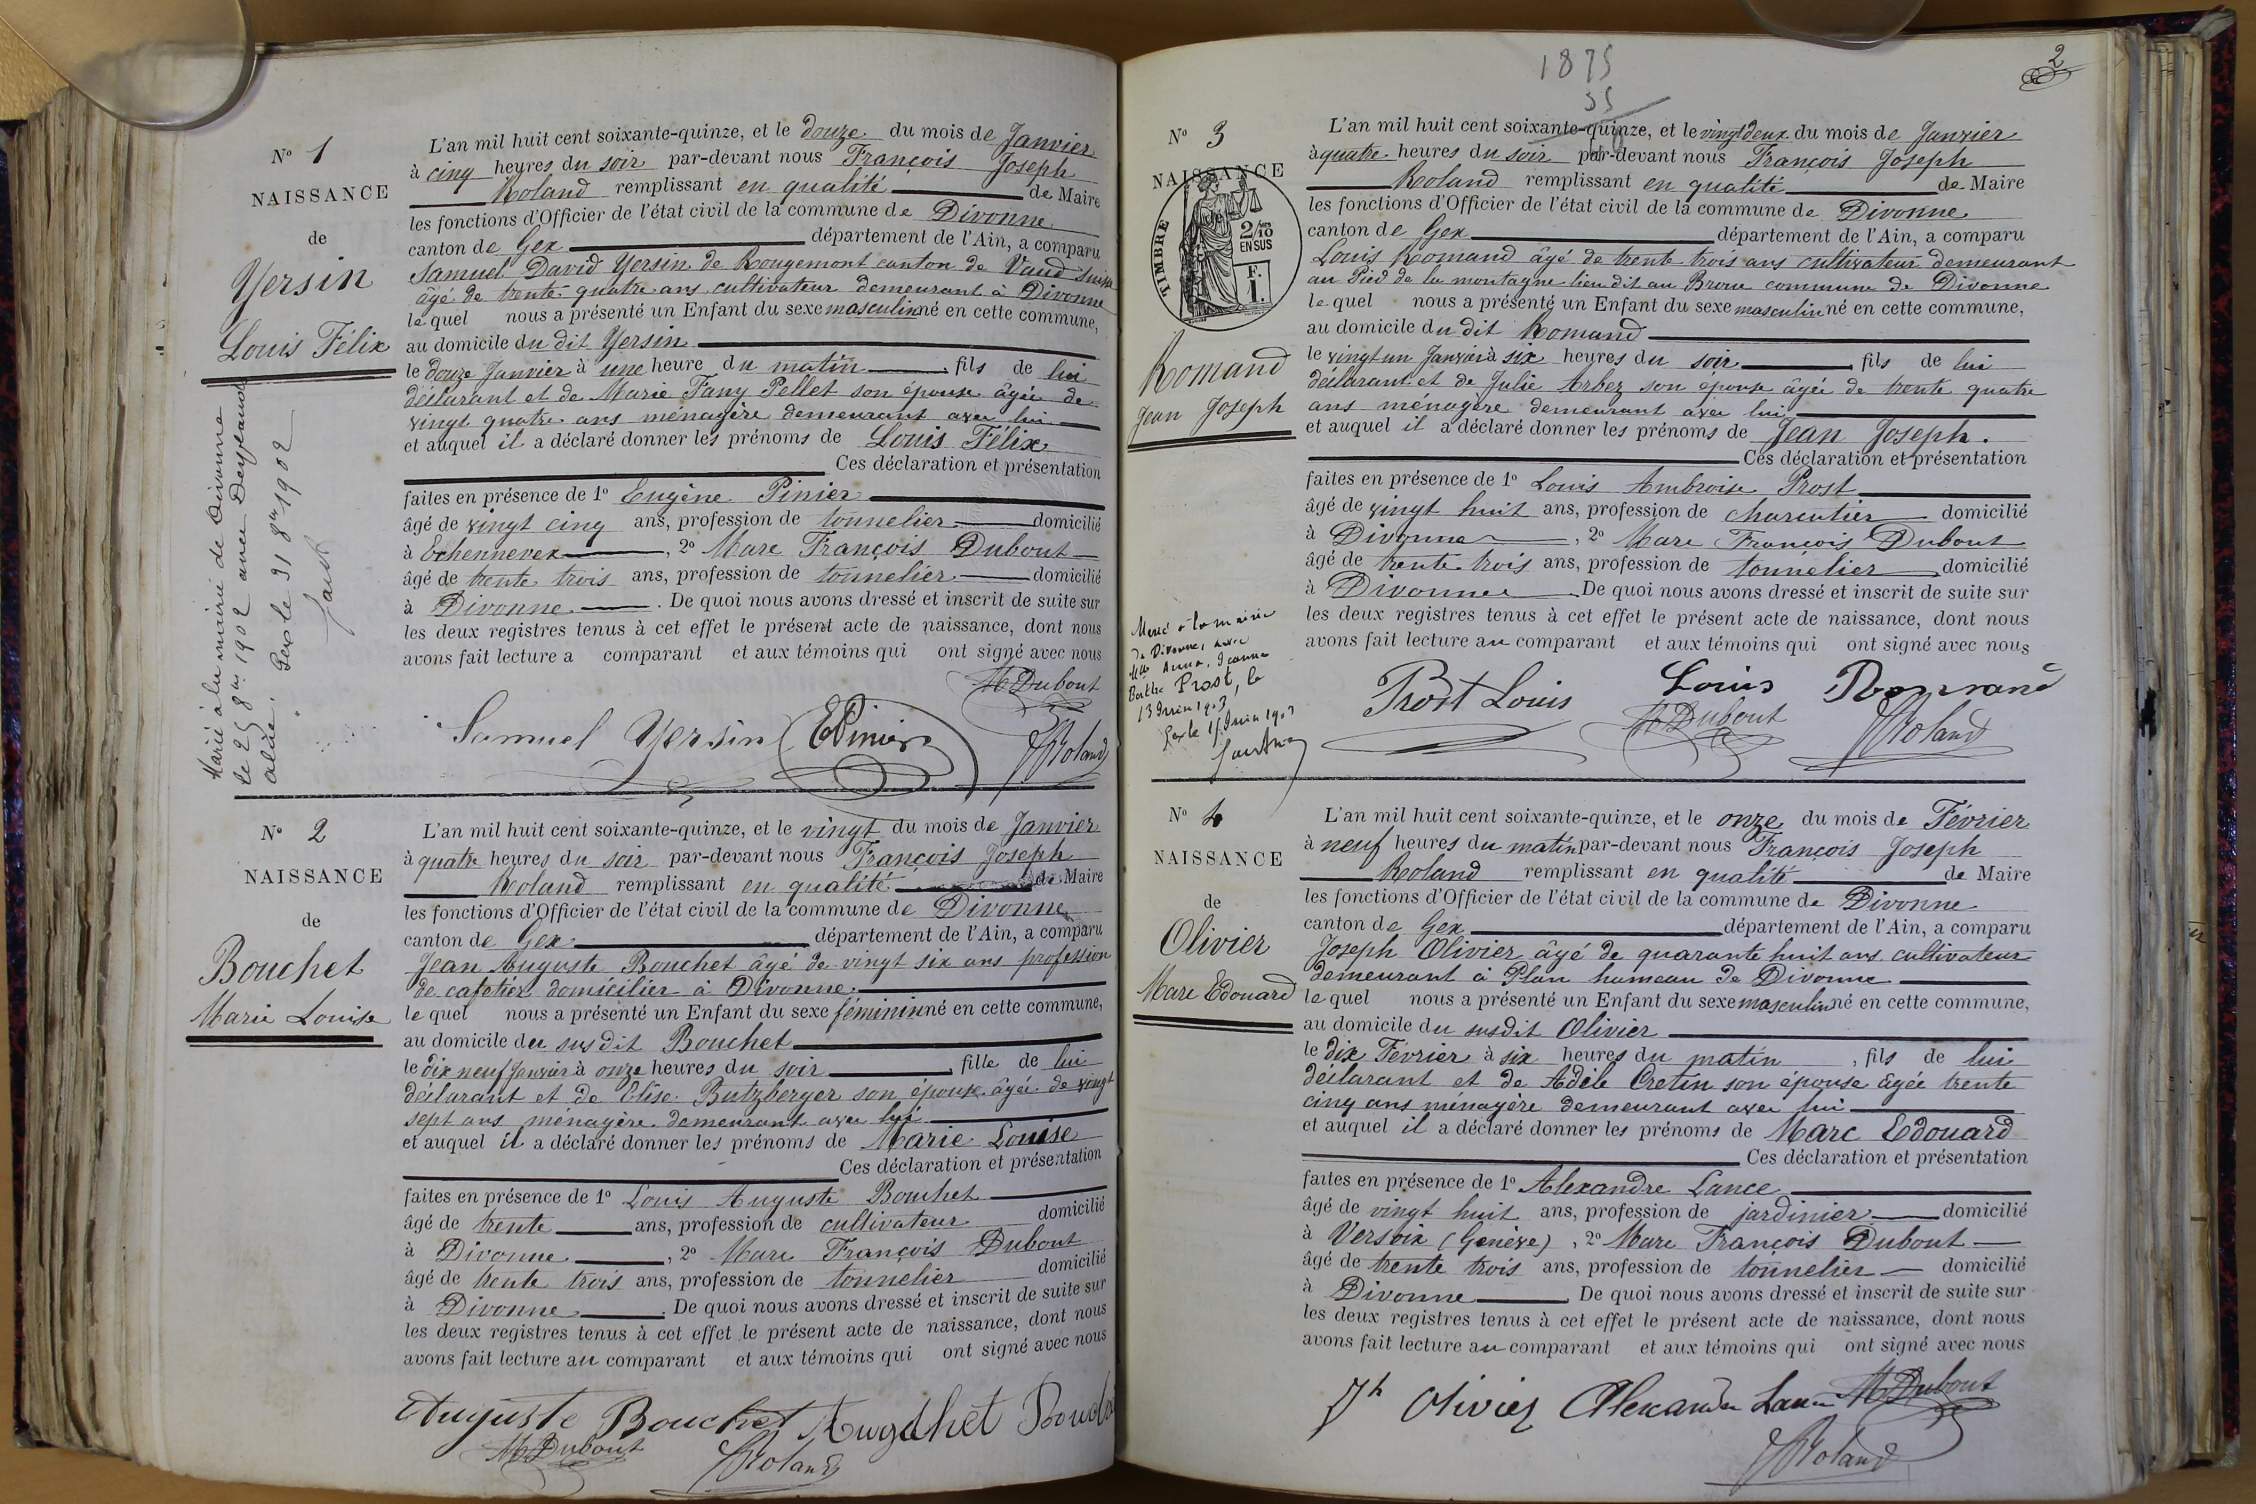 N° 1
NAISSANCE
de
Yersin
Louis Félix
Marié à la mairie de Divonne
le 25 8bre 1902 avec
Gex le 31 8bre 1902
L'an mil huit cent soixante-quinze, et le douze du mois de Janvier
à cinq heures du soir par-devant nous François Joseph
Roland remplissant en qualité de Maire
les fonctions d'Officier de l'état civil de la commune de Divonne
canton de Gex département de l'Ain, a comparu
Samuel David Yersin de Rougemont canton de Vaud Suisse
âgé de trente quatre ans cultivateur demeurant à Divonne
le quel nous a présenté un Enfant du sexe masculin né en cette commune,
au domicile du dit Yersin
le douze Janvier à une heure du matin, fils de lui
déclarant et de Marie Fany Pellet son épouse âgée de
vingt quatre ans ménagère demeurant avec lui
et auquel il a déclaré donner les prénoms de Louis Félix
Ces déclaration et présentation
faites en présence de 1° Eugène Pinier
âgé de vingt cinq ans, profession de tonnelier domicilié
à Echennevex, 2° Marc François Dubout
âgé de trente trois ans, profession de tonnelier domicilié
à Divonne. De quoi nous avons dressé et inscrit de suite sur
les deux registres tenus à cet effet le présent acte de naissance, dont nous
avons fait lecture a comparant et aux témoins qui ont signé avec nous
M Dubout
Samuel Yersin EPinier
JRoland
N° 2
NAISSANCE
de
Bouchet
Marie Louise
L'an mil huit cent soixante-quinze, et le vingt du mois de Janvier
à quatre heures du soir par-devant nous François Joseph
Roland remplissant en qualité de Maire
les fonctions d'Officier de l'état civil de la commune de Divonne
canton de Gex département de l'Ain, a comparu
Jean Auguste Bouchet âgé de vingt six ans profession
de cafetier domicilier à Divonne.
le quel nous a présenté un Enfant du sexe féminin né en cette commune,
au domicile du susdit Bouchet
le dix neuf Janvier à onze heures du soir, fille de lui
déclarant et de Elise Butzberger son épouse âgée de vingt
sept ans ménagère demeurant avec lui
et auquel il a déclaré donner les prénoms de Marie Louise
Ces déclaration et présentation
faites en présence de 1° Louis Auguste Bouchet
âgé de trente ans, profession de cultivateur domicilié
à Divonne, 2° Marc François Dubout
âgé de trente trois ans, profession de tonnelier domicilié
à Divonne. De quoi nous avons dressé et inscrit de suite sur
les deux registres tenus à cet effet le présent acte de naissance, dont nous
avons fait lecture au comparant et aux témoins qui ont signé avec nous
Auguste Bouchet
M Dubout JRoland
1875
2
N° 3
NAISSANCE
TIMBRE
2/10
EN SUS
F.
1.
Romand
Jean Joseph
Marié à la mairie
de Divonne, avec
Elle Anna, Jeanne
Berthe Prost, le
13 Juin 1903
Gex le 15 Juin 1903
L'an mil huit cent soixante-quinze, et le vingt deux du mois de Janvier
à quatre heures du soir par-devant nous François Joseph
Roland remplissant en qualité de Maire
les fonctions d'Officier de l'état civil de la commune de Divonne
canton de Gex département de l'Ain, a comparu
Louis Romand âgé de trente trois ans cultivateur demeurant
au Pied de la montagne lieu dit au Broue commune de Divonne
le quel nous a présenté un Enfant du sexe masculin né en cette commune,
au domicile du dit Romand
le vingt un Janvier à six heures du soir, fils de lui
déclarant et de Julie Arbez son épouse âgée de trente quatre
ans ménagère demeurant avec lui
et auquel il a déclaré donner les prénoms de Jean Joseph.
Ces déclaration et présentation
faites en présence de 1° Louis Ambroise Prost
âgé de vingt huit ans, profession de charcutier domicilié
à Divonne, 2° Marc François Dubout
âgé de trente trois ans, profession de tonnelier domicilié
à Divonne. De quoi nous avons dressé et inscrit de suite sur
les deux registres tenus à cet effet le présent acte de naissance, dont nous
avons fait lecture au comparant et aux témoins qui ont signé avec nous
Prost Louis Louis Romand
M Dubout JRoland
N° 4
NAISSANCE
de
Olivier
Marc Edouard
L'an mil huit cent soixante-quinze, et le onze du mois de Février
à neuf heures du matin par-devant nous François Joseph
Roland remplissant en qualité de Maire
les fonctions d'Officier de l'état civil de la commune de Divonne
canton de Gex département de l'Ain, a comparu
Joseph Olivier âgé de quarante huit ans cultivateur
demeurant à Plan hameau de Divonne
le quel nous a présenté un Enfant du sexe masculin né en cette commune,
au domicile du susdit Olivier
le dix Février à six heures du matin, fils de lui
déclarant et de Adèle Cretin son épouse âgée trente
cinq ans ménagère demeurant avec lui
et auquel il a déclaré donner les prénoms de Marc Edouard
Ces déclaration et présentation
faites en présence de 1° Alexandre Lance
âgé de vingt huit ans, profession de jardinier domicilié
à Versoix (Genève), 2° Marc François Dubout
âgé de trente trois ans, profession de tonnelier domicilié
à Divonne. De quoi nous avons dressé et inscrit de suite sur
les deux registres tenus à cet effet le présent acte de naissance, dont nous
avons fait lecture au comparant et aux témoins qui ont signé avec nous
Jh Olivier Alexandre Lance M Dubout
JRoland